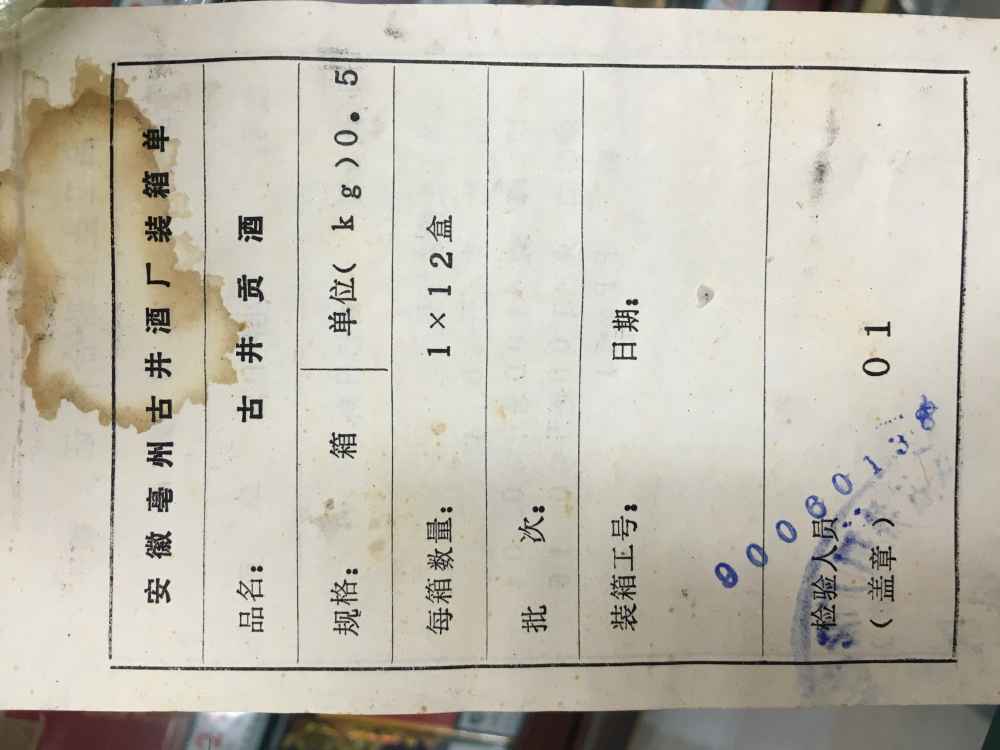 安徽亳州古井酒厂装箱单
品名: 古井贡酒
规格: 箱 单位(kg)0.5
每箱数量: 1×12盒
批 次:
装箱工号: 日期:
检验人员
(盖章) 01